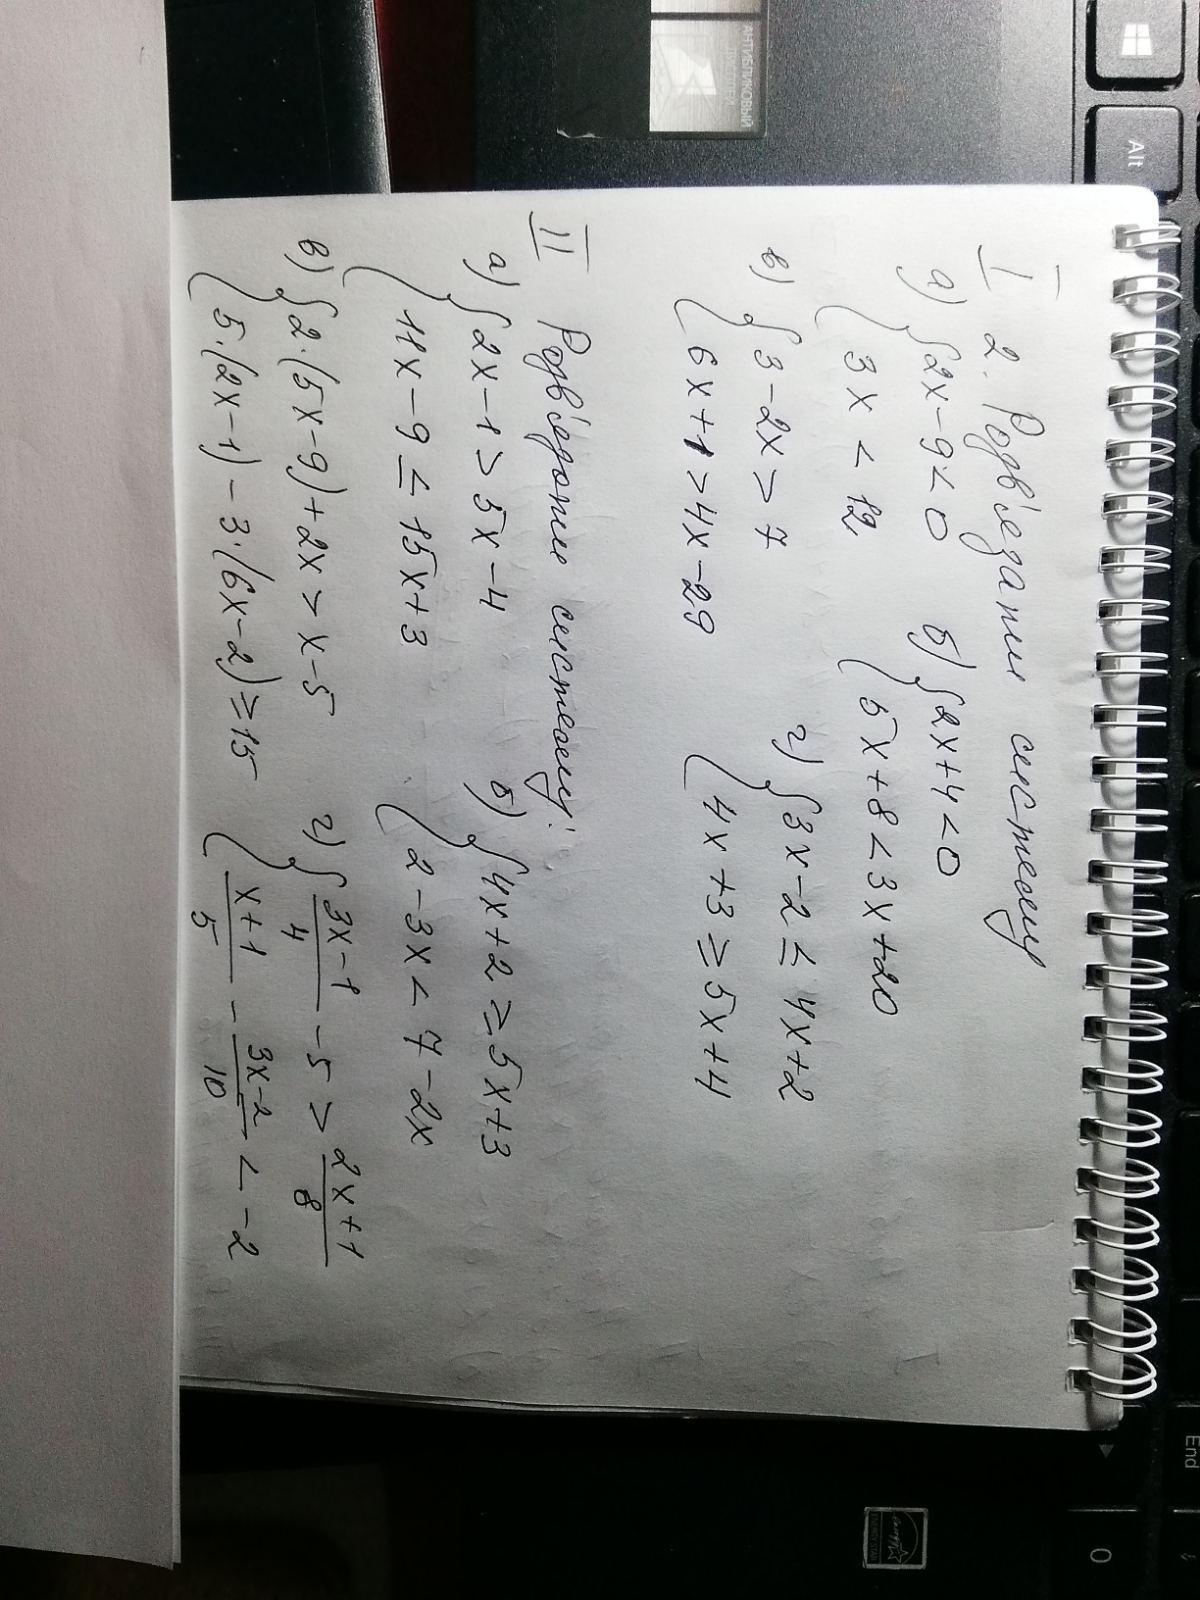 I 2. Розв'язати систему
а) { 2x-9<0
3x < 12,
б) { 2x+4<0
5x+8<3x+20
в) { 3-2x>7
6x+1>4x-29
г) { 3x-2≤4x+2
4x+3≥5x+4
II Розв'язати систему:
а) { 2x-1>5x-4
11x-9≤15x+3
б) { 4x+2≥5x+3
2-3x<7-2x
в) { 2·(5x-9)+2x>x-5
5·(2x-1)-3·(6x-2)≥15
г) { \frac{3x-1}{4}-5>\frac{2x+1}{8}
\frac{x+1}{5}-\frac{3x-2}{10}<-2
Alt
End
0
АНТИБЛИКОВЫЙ
ENERGY STAR